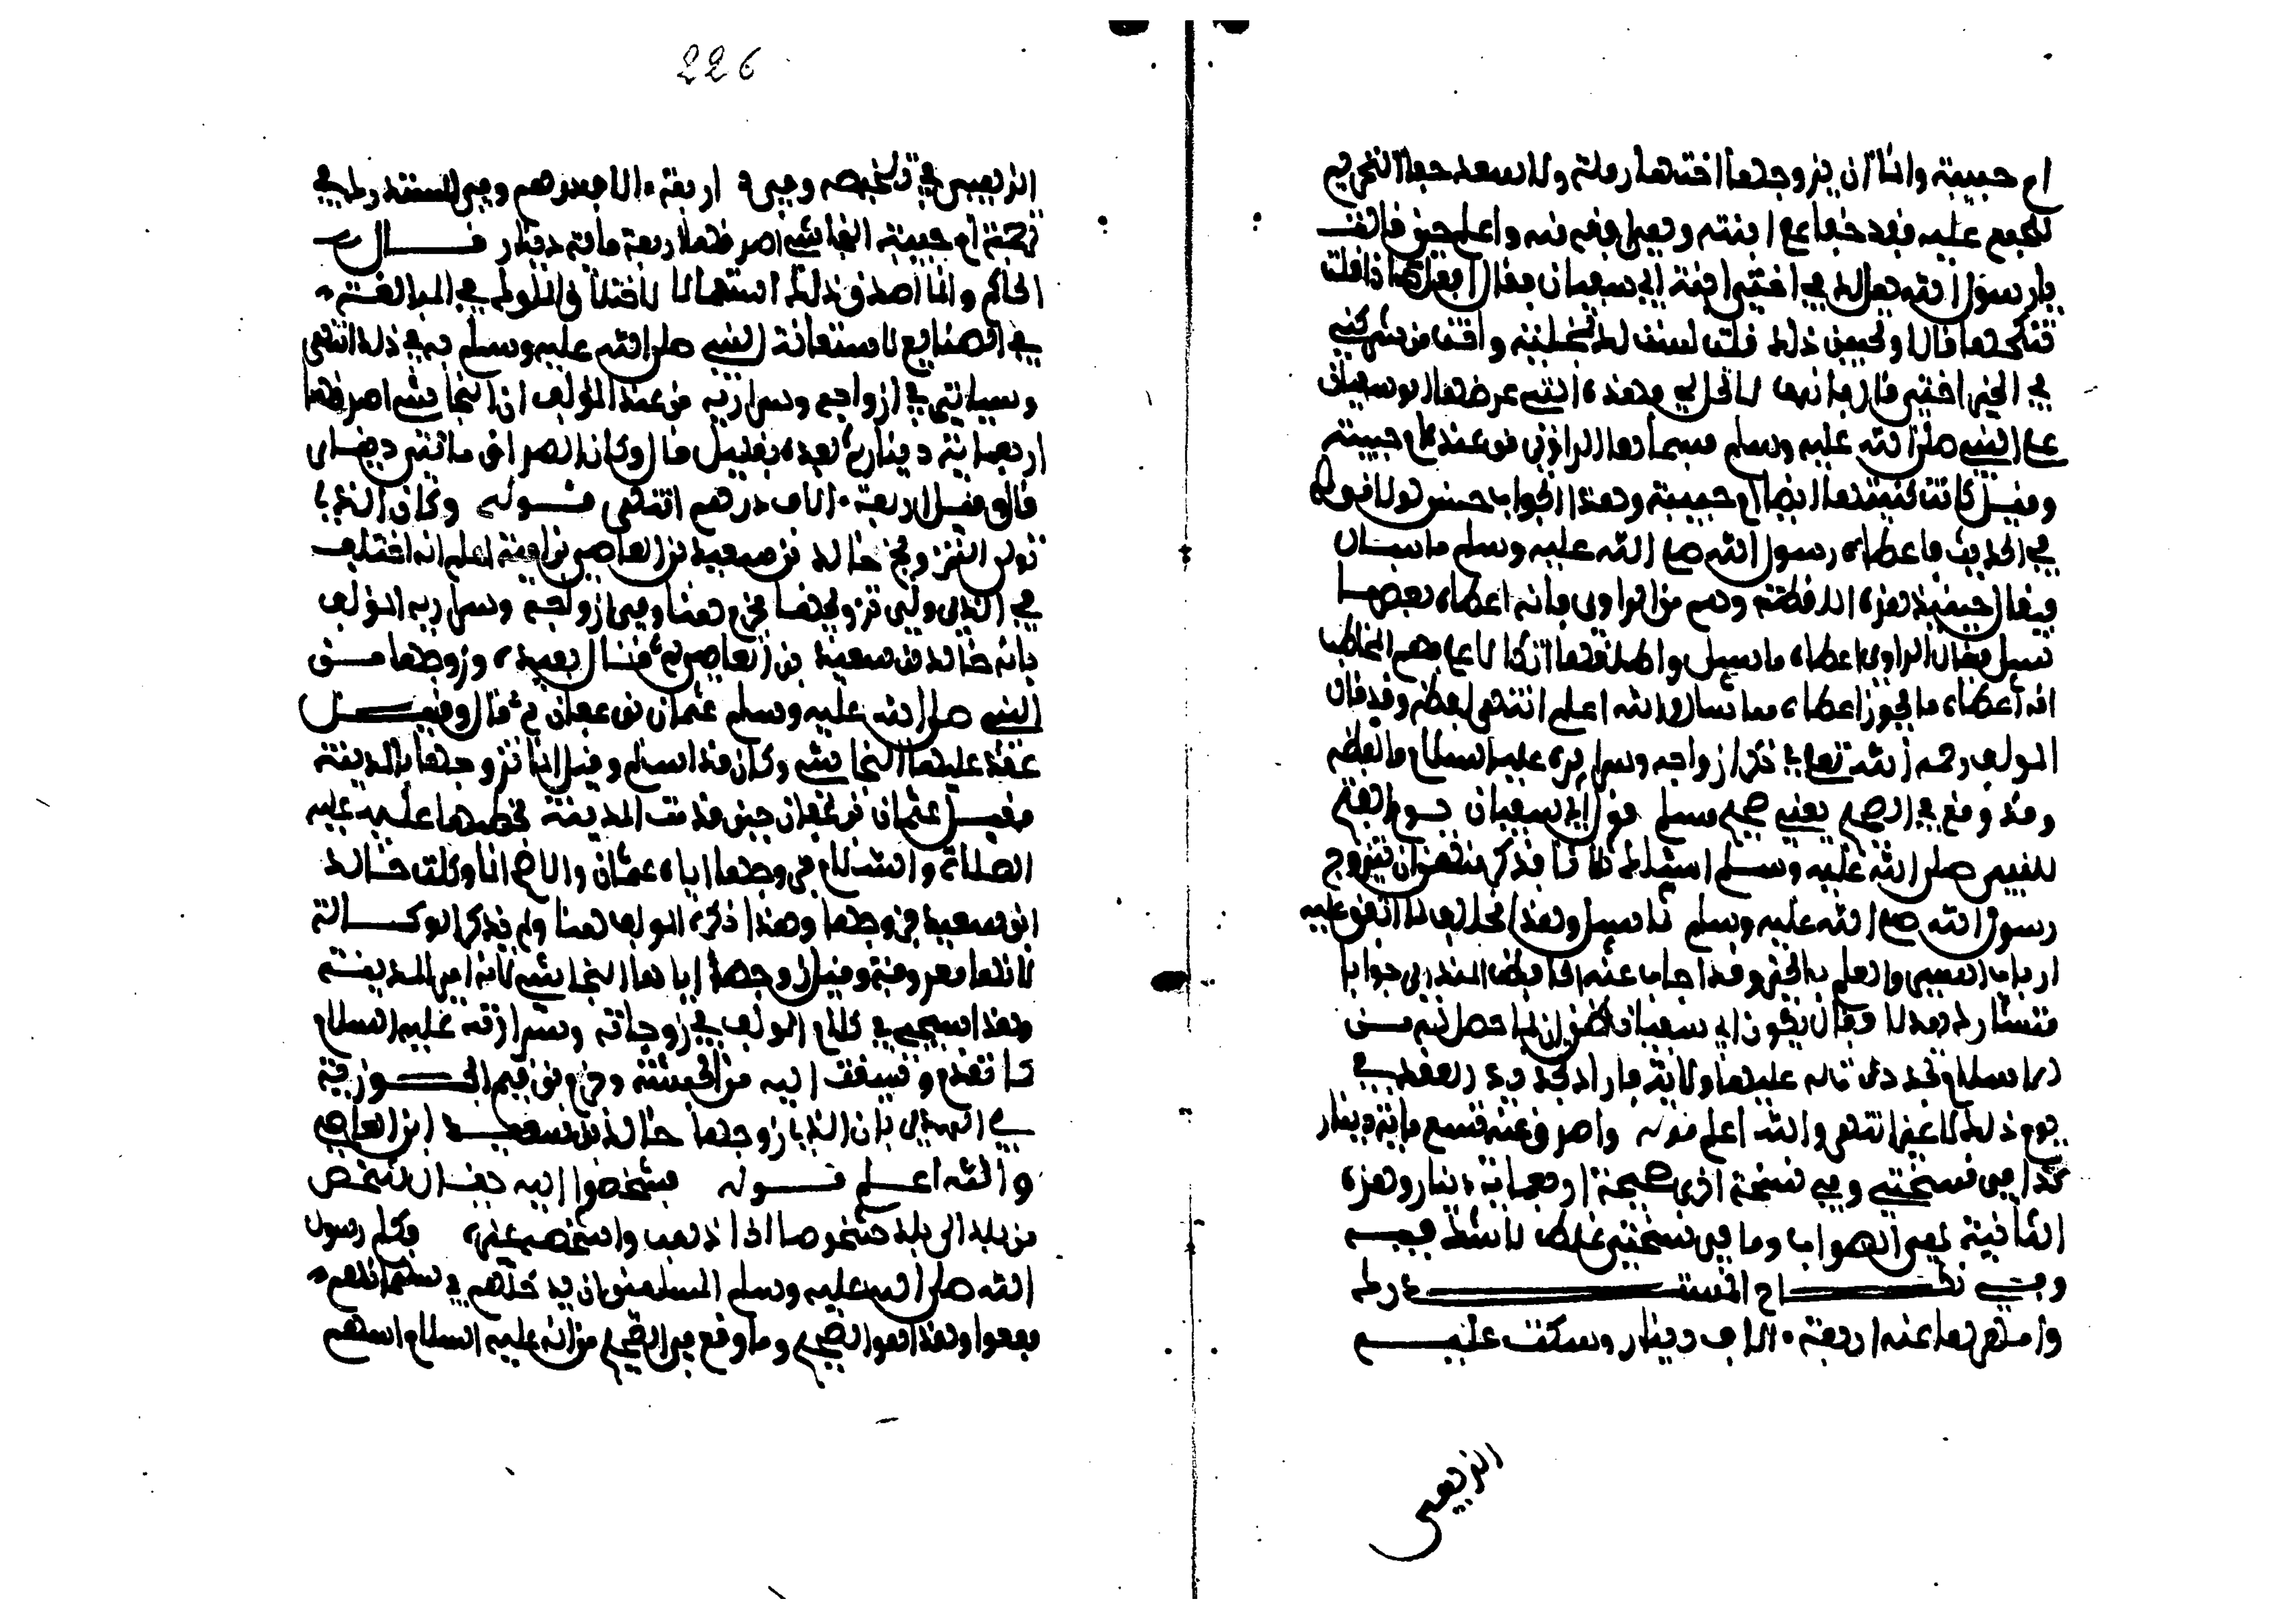 ام حبيبة وانما ان يزوجها اختها رملة ولا يبعد خفا التحريم
للجمع عليه فقد خفا على ابنته وهي افقه منه واعلم حين قالت
يا رسول الله هل لك في اختي ابنة ابي سفيان فقال افعل ماذا قلت
تنكحها قال او تحبين ذلك قلت لست لك بمخلية واحب من شركني
في الخير اختي قال فانها لا تحل لي وهذه التي عرضها ابو سفيان
على النبي صلى الله عليه وسلم فسماها الراوي من عنده ام حبيبة
وقيل كانت كنيتها ايضا ام حبيبة وهذا الجواب حسن لولا قوله
في الحديث فاعطاه رسول الله صلى الله عليه وسلم ما سال
فيقال حينئذ هذه اللفظة وهم من الراوي فانه اعطاه بعض ما
سيل فقال الراوي اعطاه ما سيل واطلقها اتكالا على فهم المخاطب
انه اعطاه ما يجوز اعطاه مما سال والله اعلم انتهى لفظه وقد قال
المولف رحمه الله تعالى في ذكر ازواجه وسراريه عليه السلام ما لفظه
وقد وقع في الصحيح يعني صحيح مسلم قول ابي سفيان يوم الفتح
للنبي صلى الله عليه وسلم اسئلك ثلاثا فذكر منهن ان يتزوج
رسول الله صلى الله عليه وسلم ما سيل وهذا مخالف لما اتفق عليه
ارباب السير والعلم بالخبر وقد اجاب عنه الحافظ المنذري جوابا
فتساءل هذلا وقال يكون ابو سفيان ظن ان بما حصل له من
الاسلام تجددت له عليها ولاية فاراد تجديد العقد
يوم ذلك لا غير انتهى والله اعلم قوله واصدق عنه تسع مائة دينار
كذا في نسختي وفي نسخة اخرى صحيحة اربعمائة دينار وهذه
الثانية هي الصواب وما في نسختي غلط لا شك فيه
وفي نكاح المستدرك
وامهرها عنه اربعة الاف دينار وسكت عليه
الذهبي
226
الذهبي في تلخيصه وفي د اربعة الاف درهم وفي المستدرك في
ترجمة ام حبيبة النجاشي اصدقها اربعة مائة دينار قال
الحاكم وانما اصدق ذلك استعمالا لاخلاق الملوك في المبالغة
في الصنايع لاستعانة النبي صلى الله عليه وسلم به في ذلك انتهى
وسياتي في ازواجه وسراريه من عند المولف ان النجاشي اصدقها
اربعمائة دينار ثم بعده بقليل قال وكان الصداق مائتي دينار
قال وقيل اربعة الاف درهم انتهى قوله وكان الذي
تولى التزويج خالد بن سعيد بن العاصي بن امية اعلم انه اختلف
في الذي ولي تزويجها فجزم هنا وفي ازواجه وسراريه المولف
بانه خالد بن سعيد بن العاصي ثم قال بعيده وزوجها من
النبي صلى الله عليه وسلم عثمان بن عفان ثم قال وقيل
عقد عليها النجاشي وكان قد اسلم وقيل انما تزوجها بالمدينة
فقيل عثمان بن عفان حين قدمت المدينة خطبها عليه
الصلاة والسلام فزوجها اياه عثمان والاصح انها وكلت خالد
ابن سعيد فزوجها وهذا ذكره المولف هنا ولم يذكر الوكالة
لانها معروفة وقيل زوجها اياها النجاشي لانه امير المدينة
وهذا سيجيء في كلام المولف في زوجاته وسراريه عليه السلام
كما تقدم و سيقت اليه من الحبشة وجزم بن قيم الجوزية
في الهدي بان الذي زوجها خالد بن سعيد ابن العاصي
والله اعلم قوله فشخصوا اليه يقال شخص
من بلد الى بلد شخوصا اذا ذهب واشخصه غيره وكلم رسول
الله صلى الله عليه وسلم المسلمين ان يدخلهم في سهمانهم
ففعلوا وهذا هو الصحيح وما وقع في الصحيح من انه عليه السلام اسهم